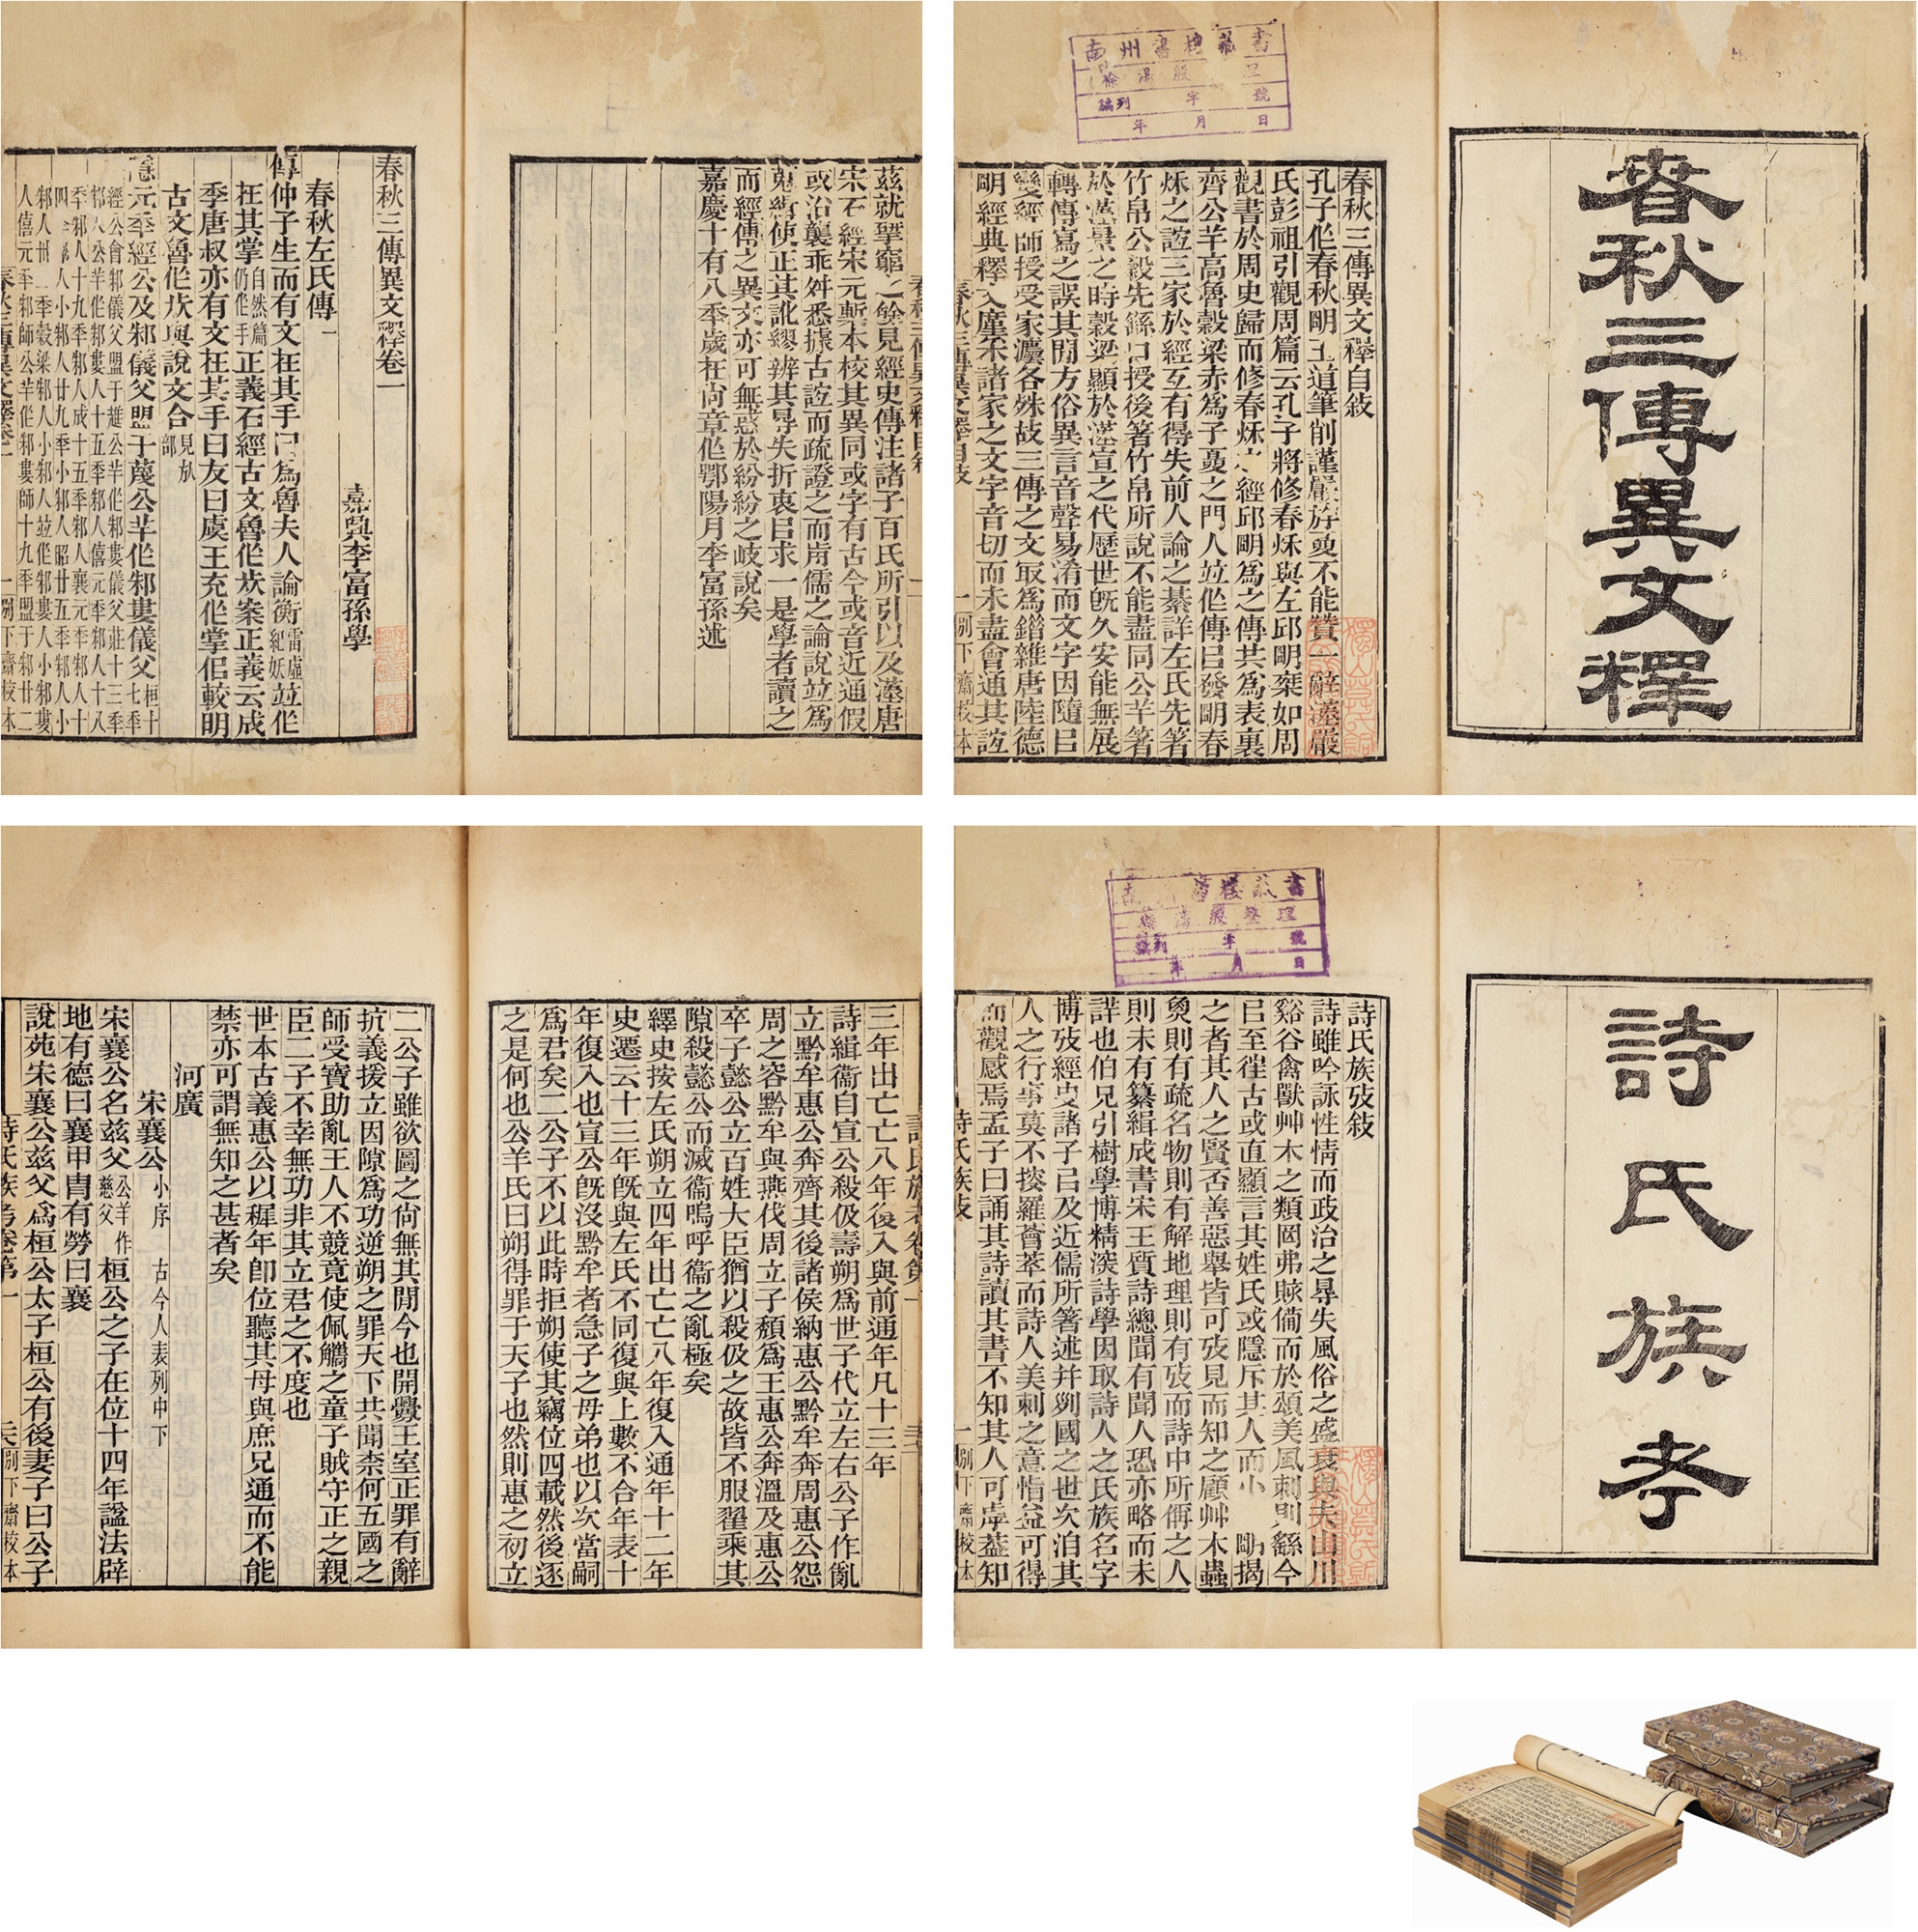 春秋三傳異文釋
南州書樓藏書
湯殷
編列 字 號
年 月 日
春秋三傳異文釋自敍
孔子作春秋明王道筆削謹嚴游夏不能贊一辭漢嚴
氏彭祖引觀周篇云孔子將修春秌與左邱明椉如周
觀書於周史歸而修春秌之經邱明爲之傳共爲表裏
齊公羊高魯穀梁赤爲子夏之門人竝作傳㠯發明春
秌之誼三家於經互有得失前人論之綦詳左氏先箸
竹帛公穀先繇口授後箸竹帛所說不能盡同公羊箸
於漢景之時穀梁顯於漢宣之代歷世旣久安能無展
轉傳寫之誤其閒方俗異言音聲易淆而文字因隨㠯
變經師授受家灋各殊故三傳之文㝡爲錯雜唐陸德
明經典釋文廑采諸家之文字音切而未盡會通其誼
一 別下齋校本
茲就硏窮之餘見經史傳注諸子百氏所引以及漢唐
宋石經宋元槧本校其異同或字有古今或音近通假
或沿襲乖舛悉據古誼而疏證之而前儒之論說竝爲
蒐輯使正其訛繆辨其㝵失折衷㠯求一是學者讀之
而經傳之異文亦可無惑於紛紛之歧說矣
嘉慶十有八秊歲在尙章作鄂陽月李富孫述
春秋三傳異文釋卷一
嘉興李富孫學
春秋左氏傳一
傳仲子生而有文在其手曰爲魯夫人論衡雷虛紀妖竝作
在其掌自然篇仍作手正義石經古文魯作㫺案正義云成
季唐叔亦有文在其手曰友曰虞王充作掌佀較明
古文魯作㫺與說文合見㫃部
隱元秊經公及邾儀父盟于蔑公羊作邾婁儀父桓十七秊
經公會邾儀父盟于趡公羊作邾婁儀父莊十三秊
邾人公羊作邾婁人十五秊邾人僖元秊邾人十八
秊邾人十九秊邾人成十五秊邾人襄元秊邾人十
四秊邾人小邾人廿九秊小邾人昭廿五秊邾人小
邾人卅一秊穀梁邾人小邾人竝作邾婁人小邾婁
人僖元秊邾師公羊作邾婁師十九秊盟于邾廿二
一 別下齋校本
詩氏族考
書樓藏書
湯殷整理
編列 字 號
年 月 日
詩氏族攷敍
詩雖吟詠性情而政治之㝵失風俗之盛衰與夫山川
谿谷禽獸艸木之類罔弗賅僃而於頌美風刺則繇今
㠯至徃古或直顯言其姓氏或隱斥其人而小 明揭
之者其人之賢否善惡舉皆可攷見而知之顧艸木蟲
奐則有疏名物則有解地理則有攷而詩中所偁之人
則未有纂緝成書宋王質詩總聞有聞人恐亦略而未
詳也伯兄引樹學博精深詩學因取詩人之氏族名字
博攷經史諸子㠯及近儒所箸述并列國之世次洎其
人之行事莫不搜羅薈萃而詩人美刺之意恉益可得
而觀感焉孟子曰誦其詩讀其書不知其人可虖葢知
詩氏族攷
一 別下齋校本
三年出亡亡八年復入與前通年凡十三年
詩緝衞自宣公殺伋壽朔爲世子代立左右公子作亂
立黔牟惠公奔齊其後諸侯納惠公黔牟奔周惠公怨
周之容黔牟與燕伐周立子頹爲王惠公奔溫及惠公
卒子懿公立百姓大臣猶以殺伋之故皆不服翟乘其
隙殺懿公而滅衞嗚呼衞之亂極矣
繹史按左氏朔立四年出亡亡八年復入通年十二年
史遷云十三年旣與左氏不同復與上數不合年表十
年復入也宣公旣沒黔牟者急子之母弟也以次當嗣
爲君矣二公子不以此時拒朔使其竊位四載然後逐
之是何也公羊氏曰朔得罪于天子也然則惠之初立
二公子雖欲圖之尙無其閒今也開釁王室正罪有辭
抗義援立因隙爲功逆朔之罪天下共聞柰何五國之
師受寶助亂王人不競竟使佩觿之童子賊守正之親
臣二子不幸無功非其立君之不度也
世本古義惠公以穉年卽位聽其母與庶兄通而不能
禁亦可謂無知之甚者矣
河廣
宋襄公小序 古今人表列中下
宋襄公名茲父公羊作慈父桓公之子在位十四年諡法辟
地有德曰襄甲胄有勞曰襄
說苑宋襄公茲父爲桓公太子桓公有後妻子曰公子
詩氏族考卷第一
別下齋校本